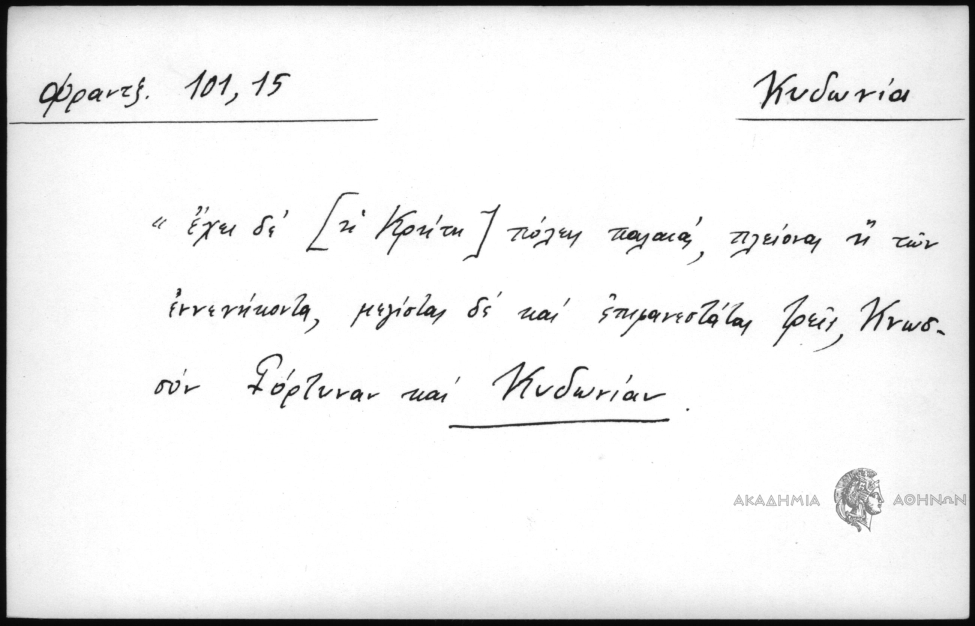 Φραντζ. 101, 15
Κυδωνία
" ἔχει δέ [ἡ Κρήτη] πόλεις παλαιάς, πλείονας ἢ τῶν
ἐννενήκοντα, μεγίστας δέ καί ἐπιφανεστάτας τρεῖς, Κνωσ-
σόν Γόρτυναν καί Κυδωνίαν.
ΑΚΑΔΗΜΙΑ ΑΘΗΝΩΝ